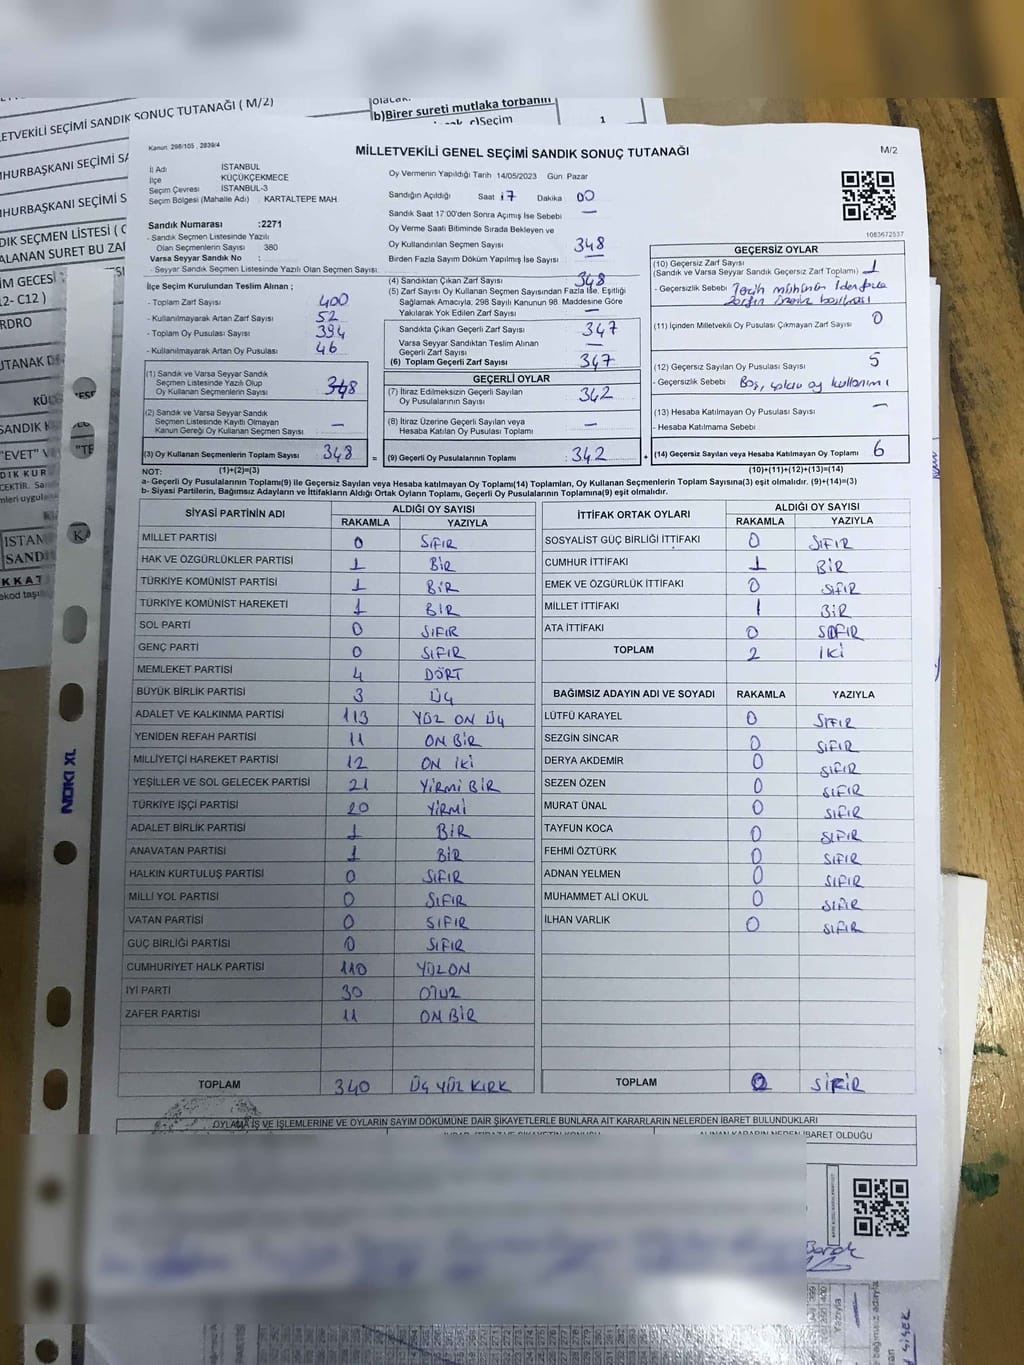 ETVEKİLİ SEÇİMİ SANDIK SONUÇ TUTANAĞI ( M/2)
b)Birer sureti mutlaka torbanın
c)Seçim
1
Kanun 298/105 , 2839/4
MİLLETVEKİLİ GENEL SEÇİMİ SANDIK SONUÇ TUTANAĞI
M/2
İl Adı İSTANBUL
İlçe KÜÇÜKÇEKMECE
Seçim Çevresi İSTANBUL-3
Seçim Bölgesi (Mahalle Adı) KARTALTEPE MAH
Oy Vermenin Yapıldığı Tarih 14/05/2023 Gün Pazar
Sandığın Açıldığı Saat 17 Dakika 00
Sandık Saat 17:00'den Sonra Açılmış İse Sebebi —
Oy Verme Saati Bitiminde Sırada Bekleyen ve
Oy Kullandırılan Seçmen Sayısı 348
Birden Fazla Sayım Döküm Yapılmış İse Sayısı —
1083672537
Sandık Numarası :2271
- Sandık Seçmen Listesinde Yazılı
Olan Seçmenlerin Sayısı 380
Varsa Seyyar Sandık No :
- Seyyar Sandık Seçmen Listesinde Yazılı Olan Seçmen Sayısı
İlçe Seçim Kurulundan Teslim Alınan ;
- Toplam Zarf Sayısı 400
- Kullanılmayarak Artan Zarf Sayısı 52
- Toplam Oy Pusulası Sayısı 394
- Kullanılmayarak Artan Oy Pusulası 46
(1) Sandık ve Varsa Seyyar Sandık
Seçmen Listesinde Yazılı Olup
Oy Kullanan Seçmenlerin Sayısı 348
(2) Sandık ve Varsa Seyyar Sandık
Seçmen Listesinde Kayıtlı Olmayan
Kanun Gereği Oy Kullanan Seçmen Sayısı —
(3) Oy Kullanan Seçmenlerin Toplam Sayısı 348
(4) Sandıktan Çıkan Zarf Sayısı 348
(5) Zarf Sayısı Oy Kullanan Seçmen Sayısından Fazla İse, Eşitliği
Sağlamak Amacıyla; 298 Sayılı Kanunun 98. Maddesine Göre
Yakılarak Yok Edilen Zarf Sayısı —
Sandıkta Çıkan Geçerli Zarf Sayısı 347
Varsa Seyyar Sandıktan Teslim Alınan
Geçerli Zarf Sayısı —
(6) Toplam Geçerli Zarf Sayısı 347
GEÇERLİ OYLAR
(7) İtiraz Edilmeksizin Geçerli Sayılan
Oy Pusulalarının Sayısı 342
(8) İtiraz Üzerine Geçerli Sayılan veya
Hesaba Katılan Oy Pusulası Toplamı —
= (9) Geçerli Oy Pusulalarının Toplamı : 342 +
GEÇERSİZ OYLAR
(10) Geçersiz Zarf Sayısı
(Sandık ve Varsa Seyyar Sandık Geçersiz Zarf Toplamı) 1
- Geçersizlik Sebebi Tercih mührünün
zarfın üzerine basılması
(11) İçinden Milletvekili Oy Pusulası Çıkmayan Zarf Sayısı 0
(12) Geçersiz Sayılan Oy Pusulası Sayısı 5
- Geçersizlik Sebebi Boş, oy kullanımı
(13) Hesaba Katılmayan Oy Pusulası Sayısı —
- Hesaba Katılmama Sebebi
(14) Geçersiz Sayılan veya Hesaba Katılmayan Oy Toplamı 6
NOT: (1)+(2)=(3) (10)+(11)+(12)+(13)=(14)
a- Geçerli Oy Pusulasının Toplamı(9) ile Geçersiz Sayılan veya Hesaba katılmayan Oy Toplamı(14) Toplamları, Oy Kullanan Seçmenlerin Toplam Sayısına(3) eşit olmalıdır. (9)+(14)=(3)
b- Siyasi Partilerin, Bağımsız Adayların ve İttifakların Aldığı Ortak Oyların Toplamı, Geçerli Oy Pusulalarının Toplamına(9) eşit olmalıdır.
SİYASİ PARTİNİN ADI ALDIĞI OY SAYISI
RAKAMLA YAZIYLA
MİLLET PARTİSİ 0 SIFIR
HAK VE ÖZGÜRLÜKLER PARTİSİ 1 BİR
TÜRKİYE KOMÜNİST PARTİSİ 1 BİR
TÜRKİYE KOMÜNİST HAREKETİ 1 BİR
SOL PARTİ 0 SIFIR
GENÇ PARTİ 0 SIFIR
MEMLEKET PARTİSİ 4 DÖRT
BÜYÜK BİRLİK PARTİSİ 3 ÜÇ
ADALET VE KALKINMA PARTİSİ 113 YÜZ ON ÜÇ
YENİDEN REFAH PARTİSİ 11 ON BİR
MİLLİYETÇİ HAREKET PARTİSİ 12 ON İKİ
YEŞİLLER VE SOL GELECEK PARTİSİ 21 YİRMİ BİR
TÜRKİYE İŞÇİ PARTİSİ 20 YİRMİ
ADALET BİRLİK PARTİSİ 1 BİR
ANAVATAN PARTİSİ 1 BİR
HALKIN KURTULUŞ PARTİSİ 0 SIFIR
MİLLİ YOL PARTİSİ 0 SIFIR
VATAN PARTİSİ 0 SIFIR
GÜÇ BİRLİĞİ PARTİSİ 0 SIFIR
CUMHURİYET HALK PARTİSİ 110 YÜZ ON
İYİ PARTİ 30 OTUZ
ZAFER PARTİSİ 11 ON BİR
TOPLAM 340 ÜÇ YÜZ KIRK
İTTİFAK ORTAK OYLARI ALDIĞI OY SAYISI
RAKAMLA YAZIYLA
SOSYALİST GÜÇ BİRLİĞİ İTTİFAKI 0 SIFIR
CUMHUR İTTİFAKI 1 BİR
EMEK VE ÖZGÜRLÜK İTTİFAKI 0 SIFIR
MİLLET İTTİFAKI 1 BİR
ATA İTTİFAKI 0 SIFIR
TOPLAM 2 İKİ
BAĞIMSIZ ADAYIN ADI VE SOYADI RAKAMLA YAZIYLA
LÜTFÜ KARAYEL 0 SIFIR
SEZGİN SİNCAR 0 SIFIR
DERYA AKDEMİR 0 SIFIR
SEZEN ÖZEN 0 SIFIR
MURAT ÜNAL 0 SIFIR
TAYFUN KOCA 0 SIFIR
FEHMİ ÖZTÜRK 0 SIFIR
ADNAN YELMEN 0 SIFIR
MUHAMMET ALİ OKUL 0 SIFIR
İLHAN VARLIK 0 SIFIR
TOPLAM 0 SIFIR
OYLAMA İŞ VE İŞLEMLERİNE VE OYLARIN SAYIM DÖKÜMÜNE DAİR ŞİKAYETLERLE BUNLARA AİT KARARLARIN NELERDEN İBARET BULUNDUKLARI
ALINAN KARARIN NEDEN İBARET OLDUĞU
NOKI XL